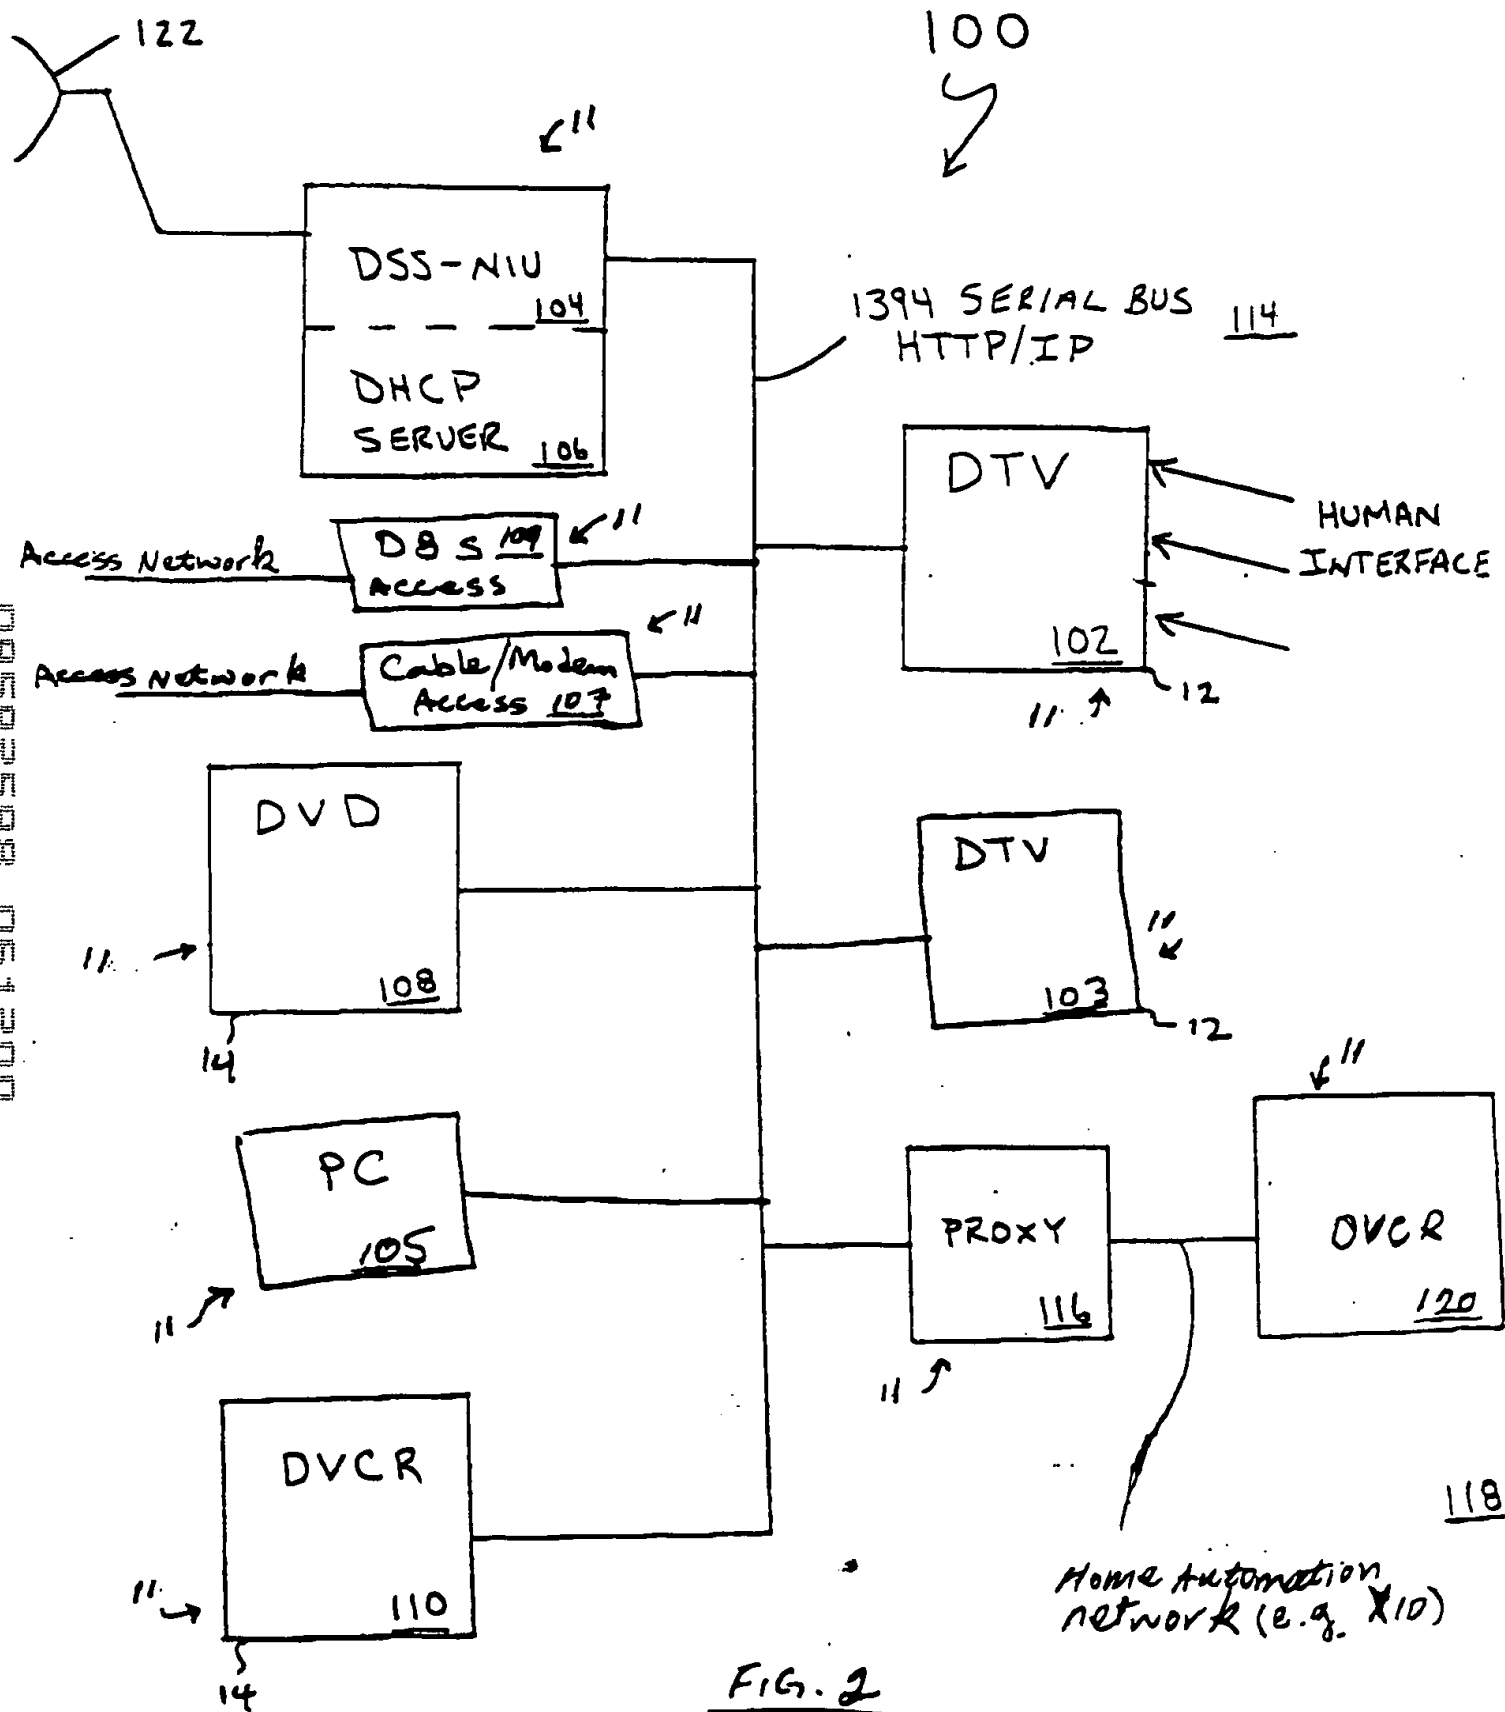 122
100
11
DSS-NIU
104
DHCP
SERVER
106
1394 SERIAL BUS
HTTP/IP
114
DTV
102
HUMAN
INTERFACE
12
11
Access Network
DBS 109
Access
11
Access Network
Cable/Modem
Access 107
11
DVD
108
11
14
DTV
103
11
12
PC
105
11
PROXY
116
11
DVCR
120
11
DVCR
110
11
14
118
Home Automation
network (e.g. X10)
FIG. 2